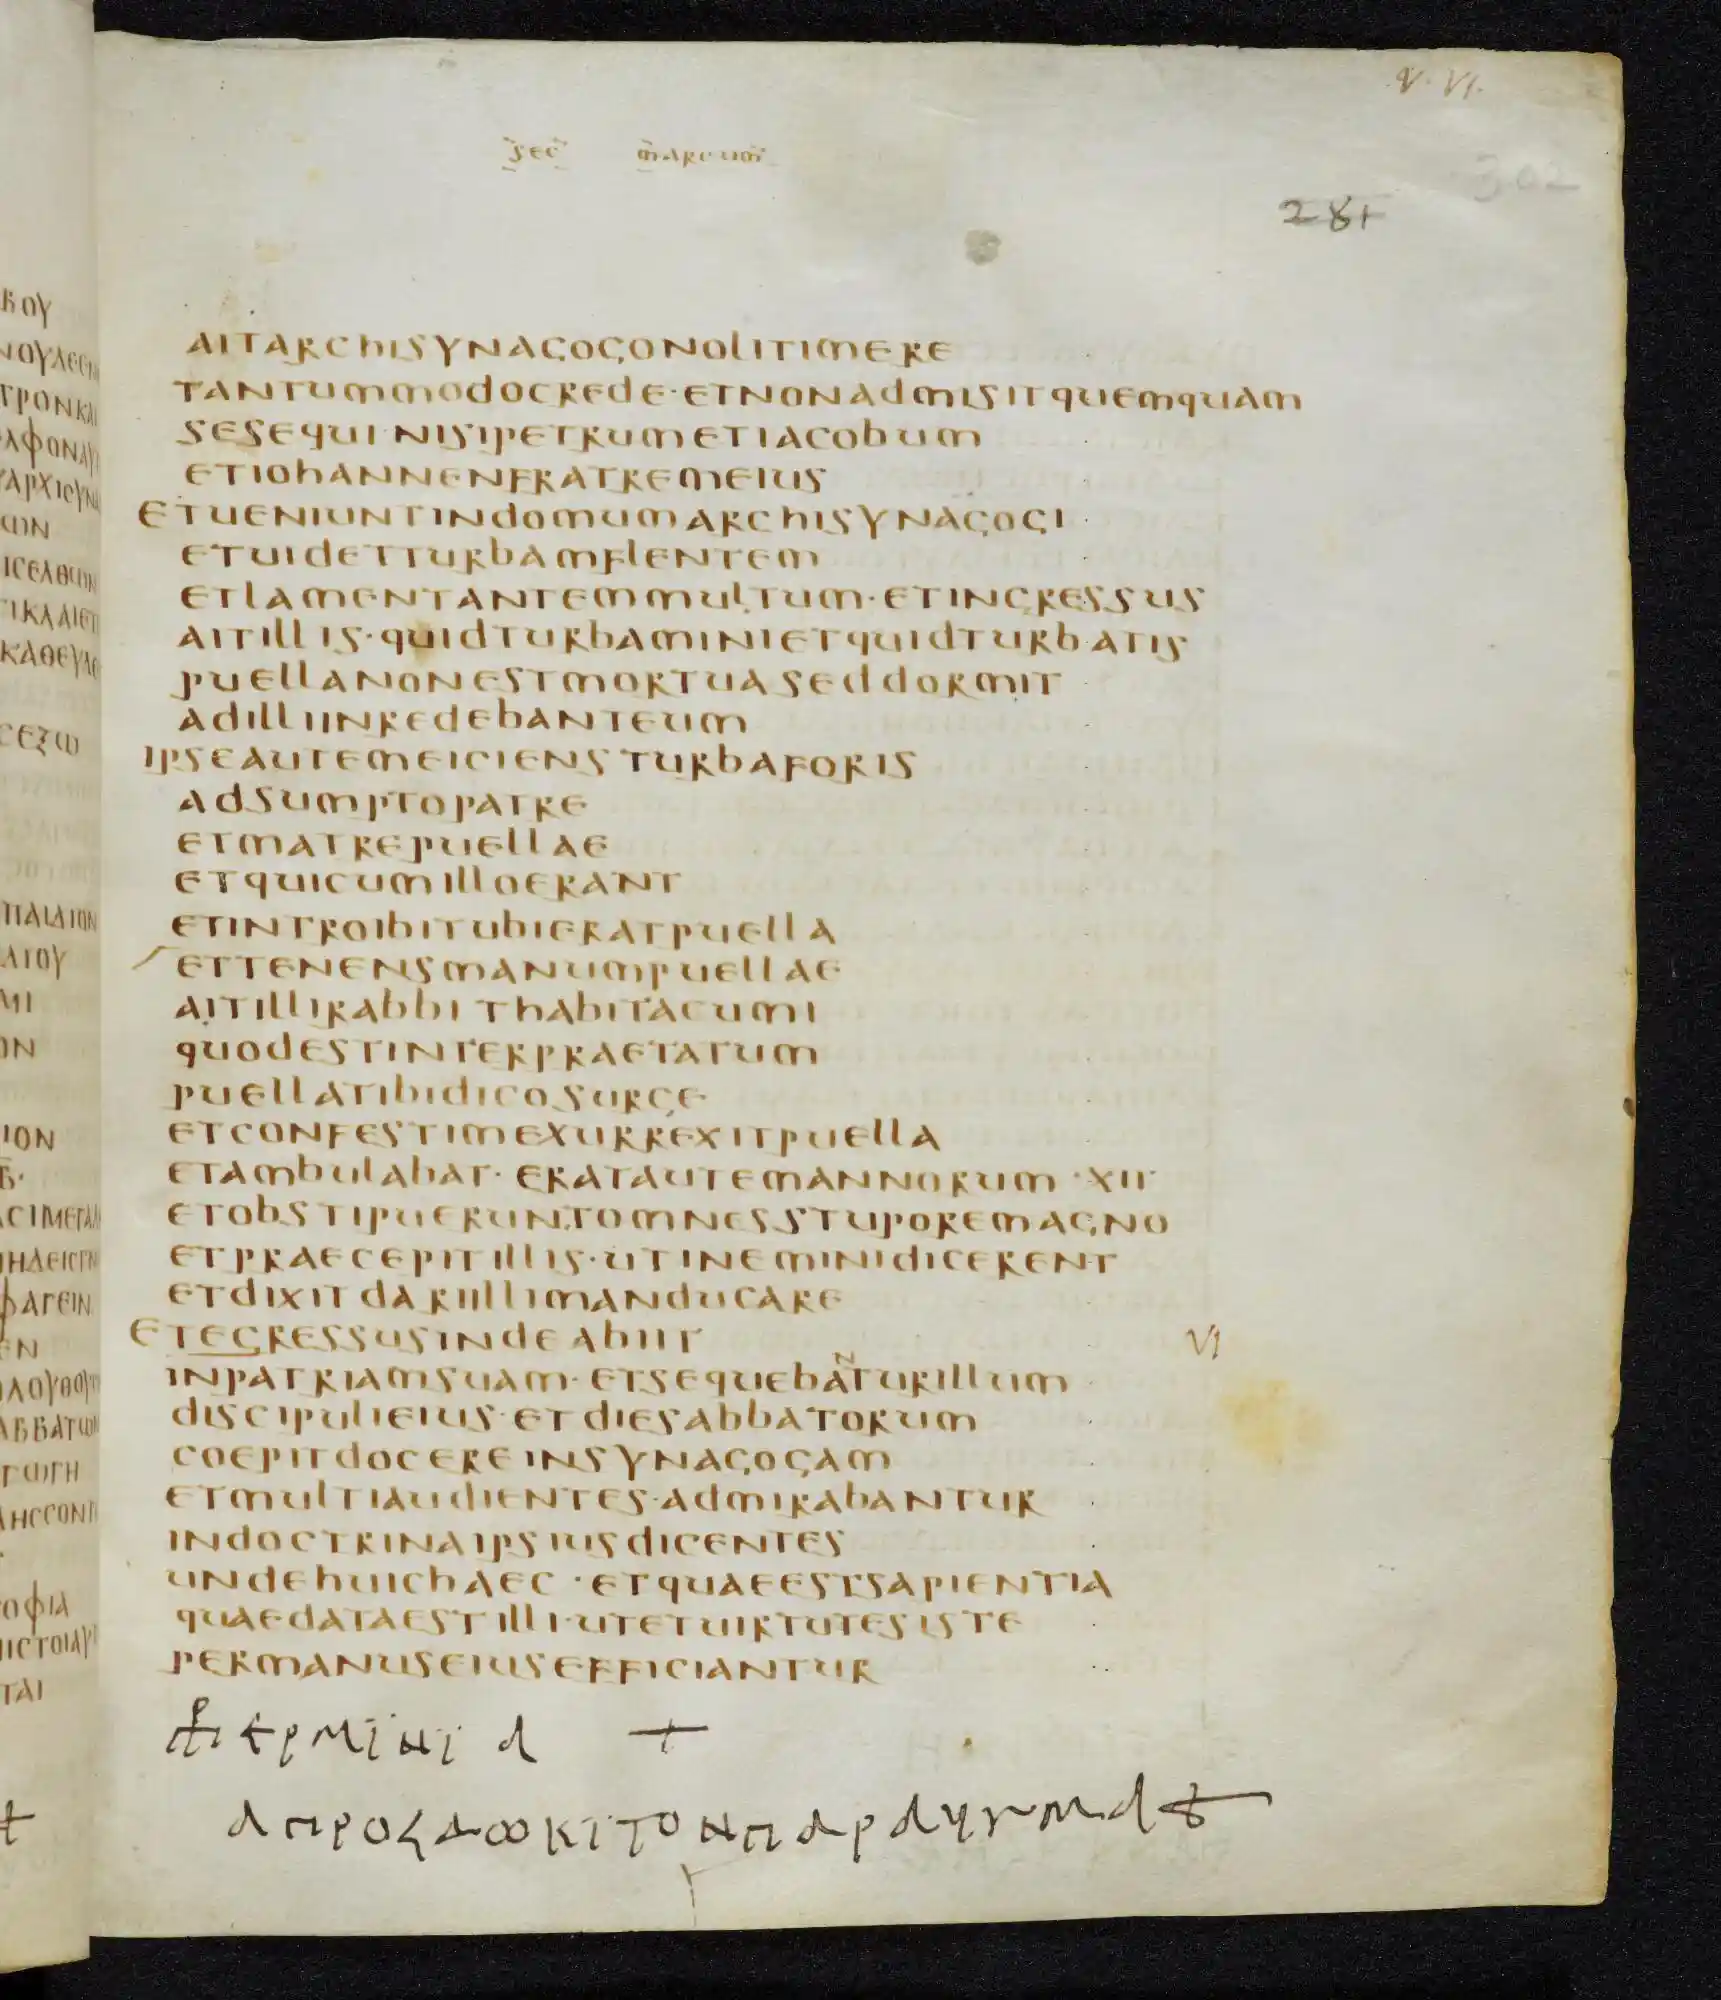 V. VI.
sec marcum
302
281
AITARCHISYNAGOGONOLITIMERE
TANTUMMODOCREDE·ETNONADMISITQUEMQUAM
SESEQUI·NISIPETRUMETIACOBUM
ETIOHANNENFRATREMEIUS
ETUENIUNTINDOMUMARCHISYNAGOGI
ETUIDETTURBAMFLENTEM
ETLAMENTANTEMMULTUM·ETINGRESSUS
AITILLIS·QUIDTURBAMINIETQUIDTURBATIS
PUELLANONESTMORTUASEDDORMIT
ADILLIINREDEBANTEUM
IPSEAUTEMEICIENSTURBAFORIS
ADSUMPTOPATRE
ETMATREPUELLAE
ETQUICUMILLOERANT
ETINTROIBITUBIERATPUELLA
ETTENENSMANUMPUELLAE
AITILLIRABBITHABITACUMI
QUODESTINTERPRAETATUM
PUELLATIBIDICOSURGE
ETCONFESTIMEXURREXITPUELLA
ETAMBULABAT·ERATAUTEMANNORUM·XII
ETOBSTIPUERUNTOMNESSTUPOREMAGNO
ETPRAECEPITILLIS·UTINEMINIDICERENT
ETDIXITDARIILLIMANDUCARE
ETEGRESSUSINDEABIIT VI
INPATRIAMSUAM·ETSEQUEBANTURILLUM
DISCIPULIEIUS·ETDIESABBATORUM
COEPITDOCEREINSYNAGOGAM
ETMULTIAUDIENTES·ADMIRABANTUR
INDOCTRINAIPSIUSDICENTES
UNDEHUICHAEC·ETQUAEESTSAPIENTIA
QUAEDATAESTILLI·UTETUIRTUTESISTE
PERMANUSEIUSEFFICIANTUR
ερμϊνϊα +
απροσδωκιτονπαραγνμα